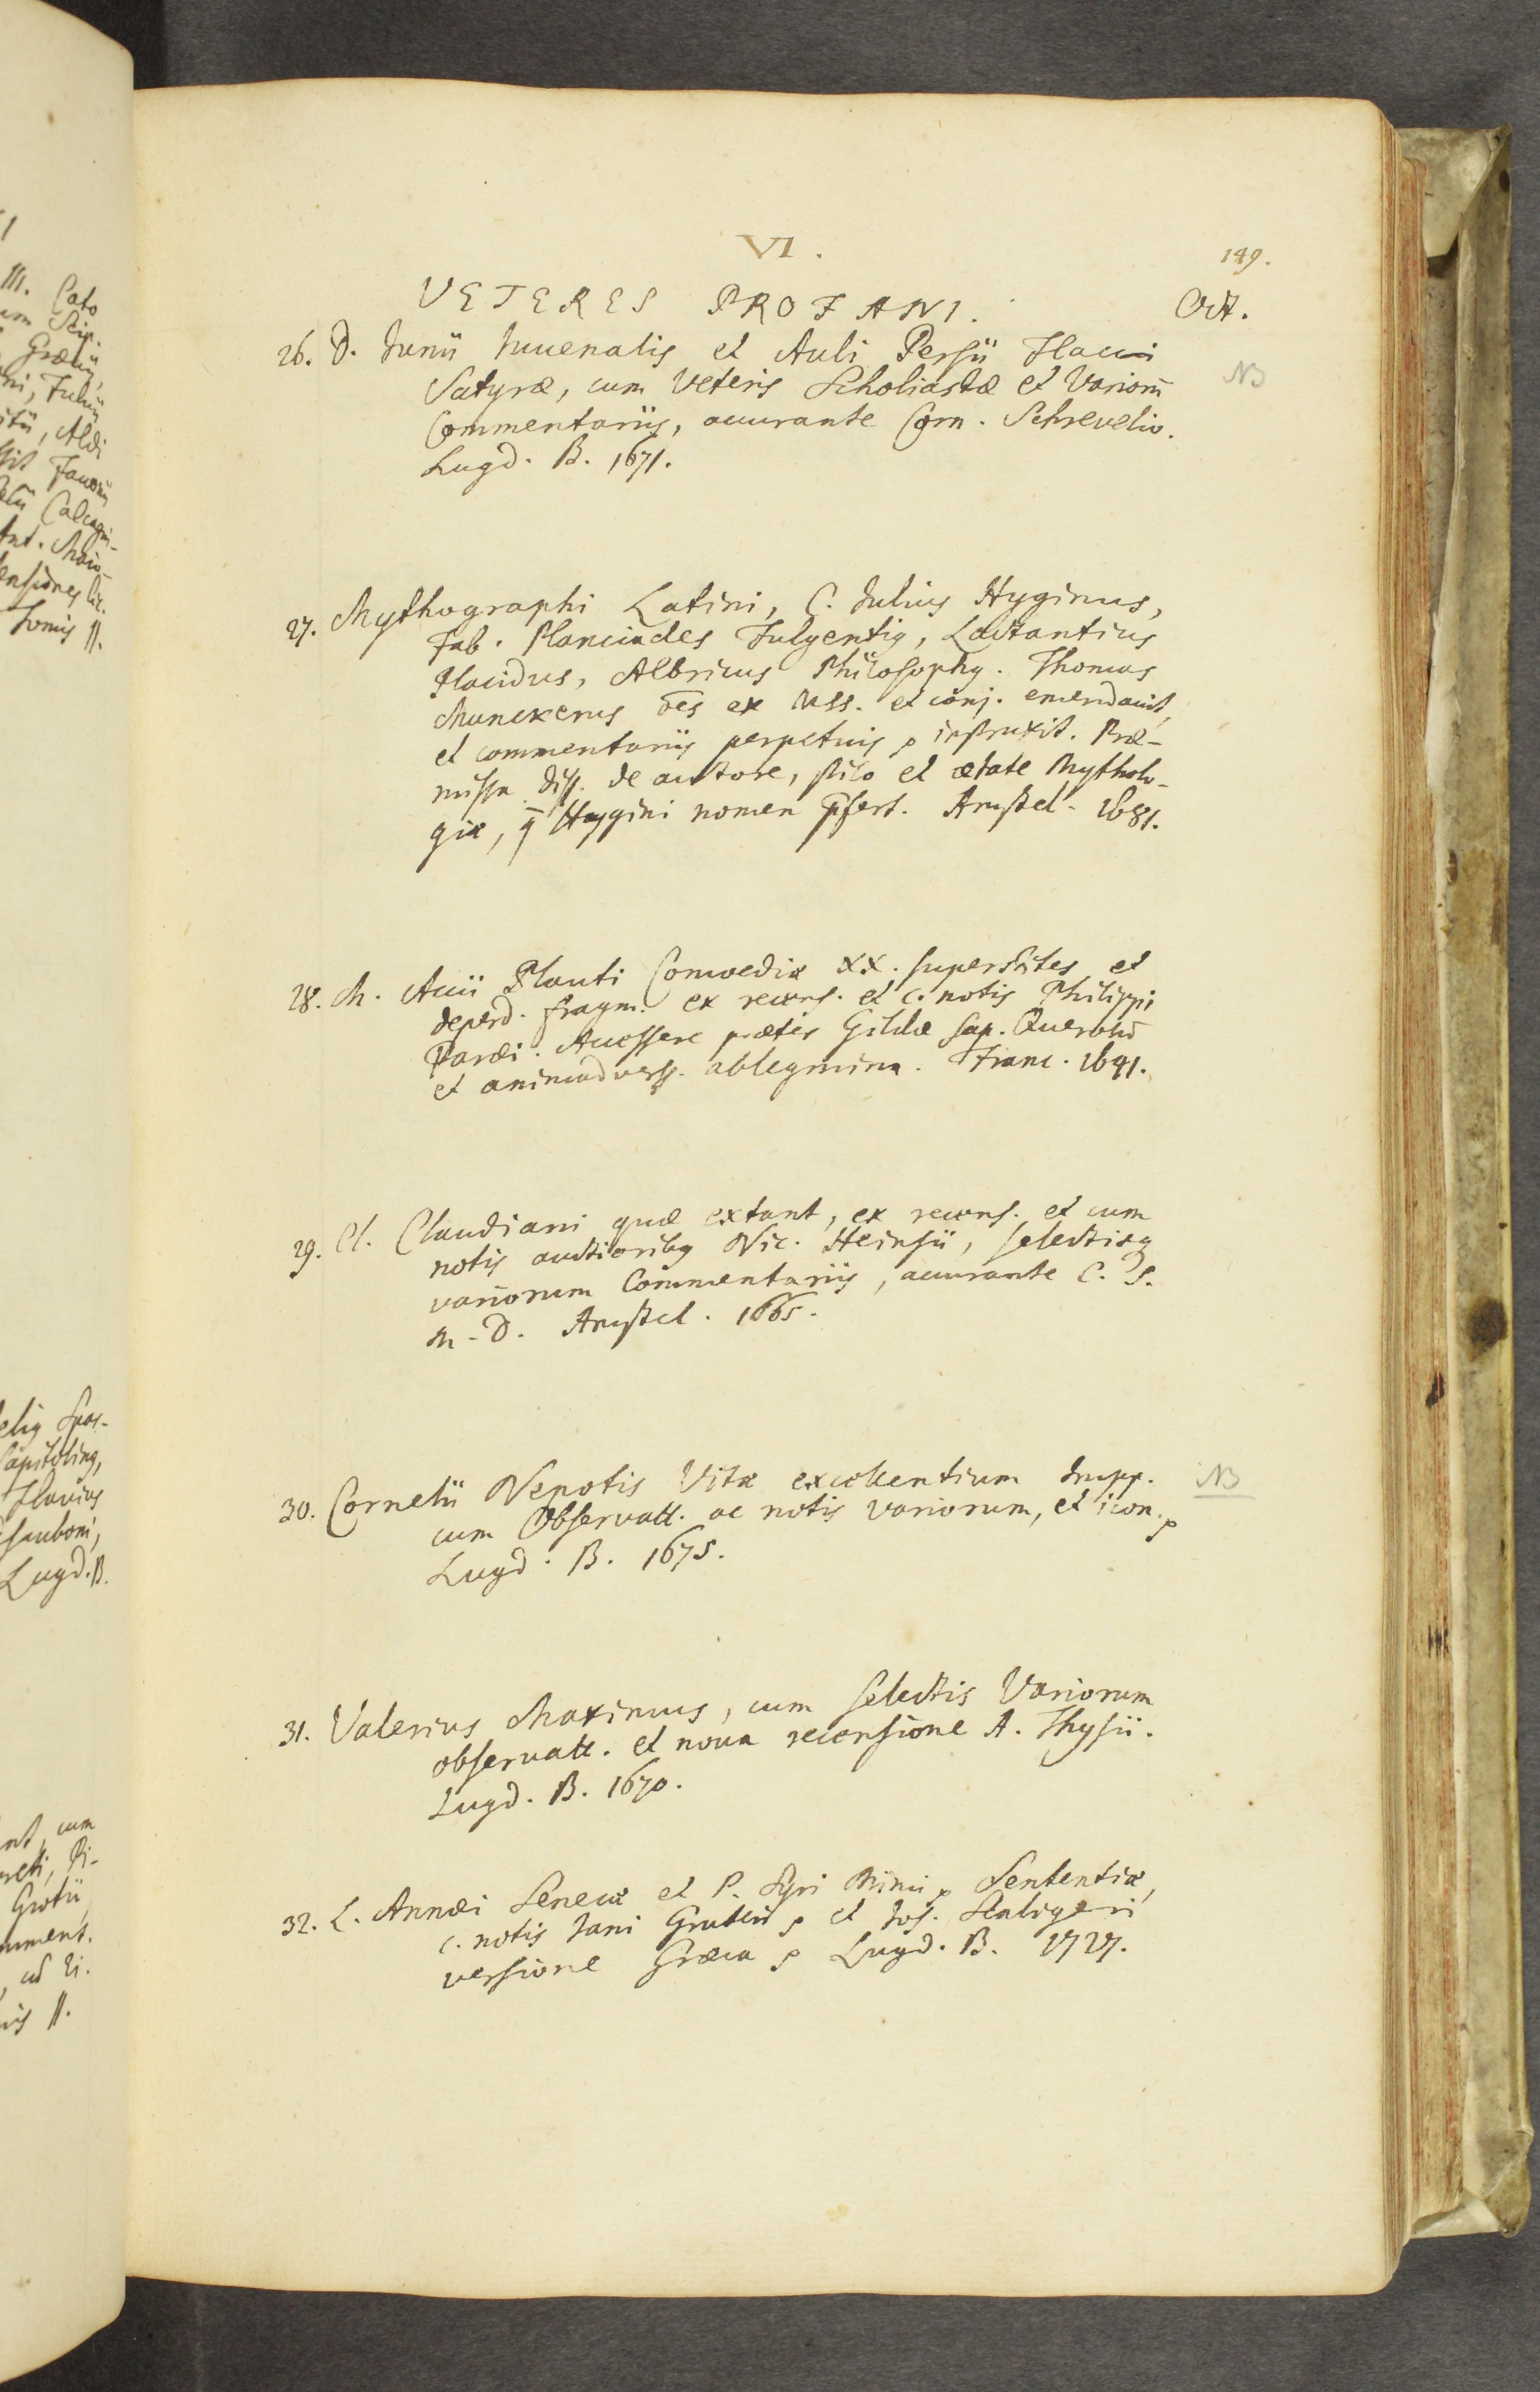 VI.
149.
VETERES PROFANI.
Oct.
26. D. Junii Juuenalis et Auli Persii Flacci
NB
Satyræ, cum Veteris Scholiastæ et Variorū
Commentariis, accurante Corn. Schrevelio.
Lugd. B. 1671.
27. Mythographi Latini, C. Julius Hyginus,
Fab. Planciades Fulgentiꝰ, Lactantius
Placidus, Albricus Philosophꝰ. Thomas
Munckerus ōēs ex Mss. et conj. emendauit,
et commentariis perpetuis instruxit. Præ-
missa diss. de auctore, stilo et ætate Mytholo-
giæ, q̄ Hygini nomen p̄fert. Amstel. 1681.
28. M. Accii Plauti Comoediæ XX. superstites et
deperd. fragm. ex recens. et c. notis Philippi
Paræi. Accessere præter Gildæ Sap. Querolū
et animadverss. ablegmina. Franc. 1641.
29. Cl. Claudiani quæ extant, ex recens. et cum
notis auctioribꝰ Nic. Heinsii, selectisq
variorum Commentariis, accurante C. S.
M. D. Amstel. 1665.
30. Cornelii Nepotis Vitæ excellentium Impp.
NB
cum Observatt. ac notis variorum, et icon.
Lugd. B. 1675.
31. Valerius Maximus, cum selectis Variorum
observatt. et noua recensione A. Thysii.
Lugd. B. 1670.
32. L. Annæi Senecæ et P. Syri Mimi Sententiæ,
c. notis Jani Gruteri et Jos. Scaligeri
versione Græca Lugd. B. 1727.